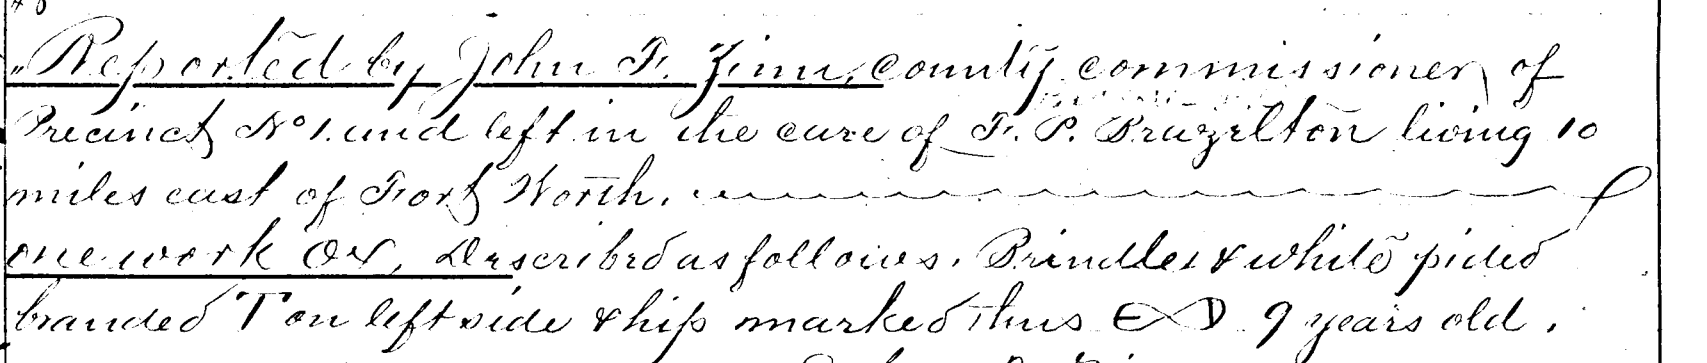 "Reported by John F. Zinn, county commissioner of
Precinct No 1. and left in the care of F. P. Brazelton living 10
miles east of Fort Worth.
one work Ox, Described as follows. Brindle & white pided
branded T on left side & hip marked thus 9 years old.